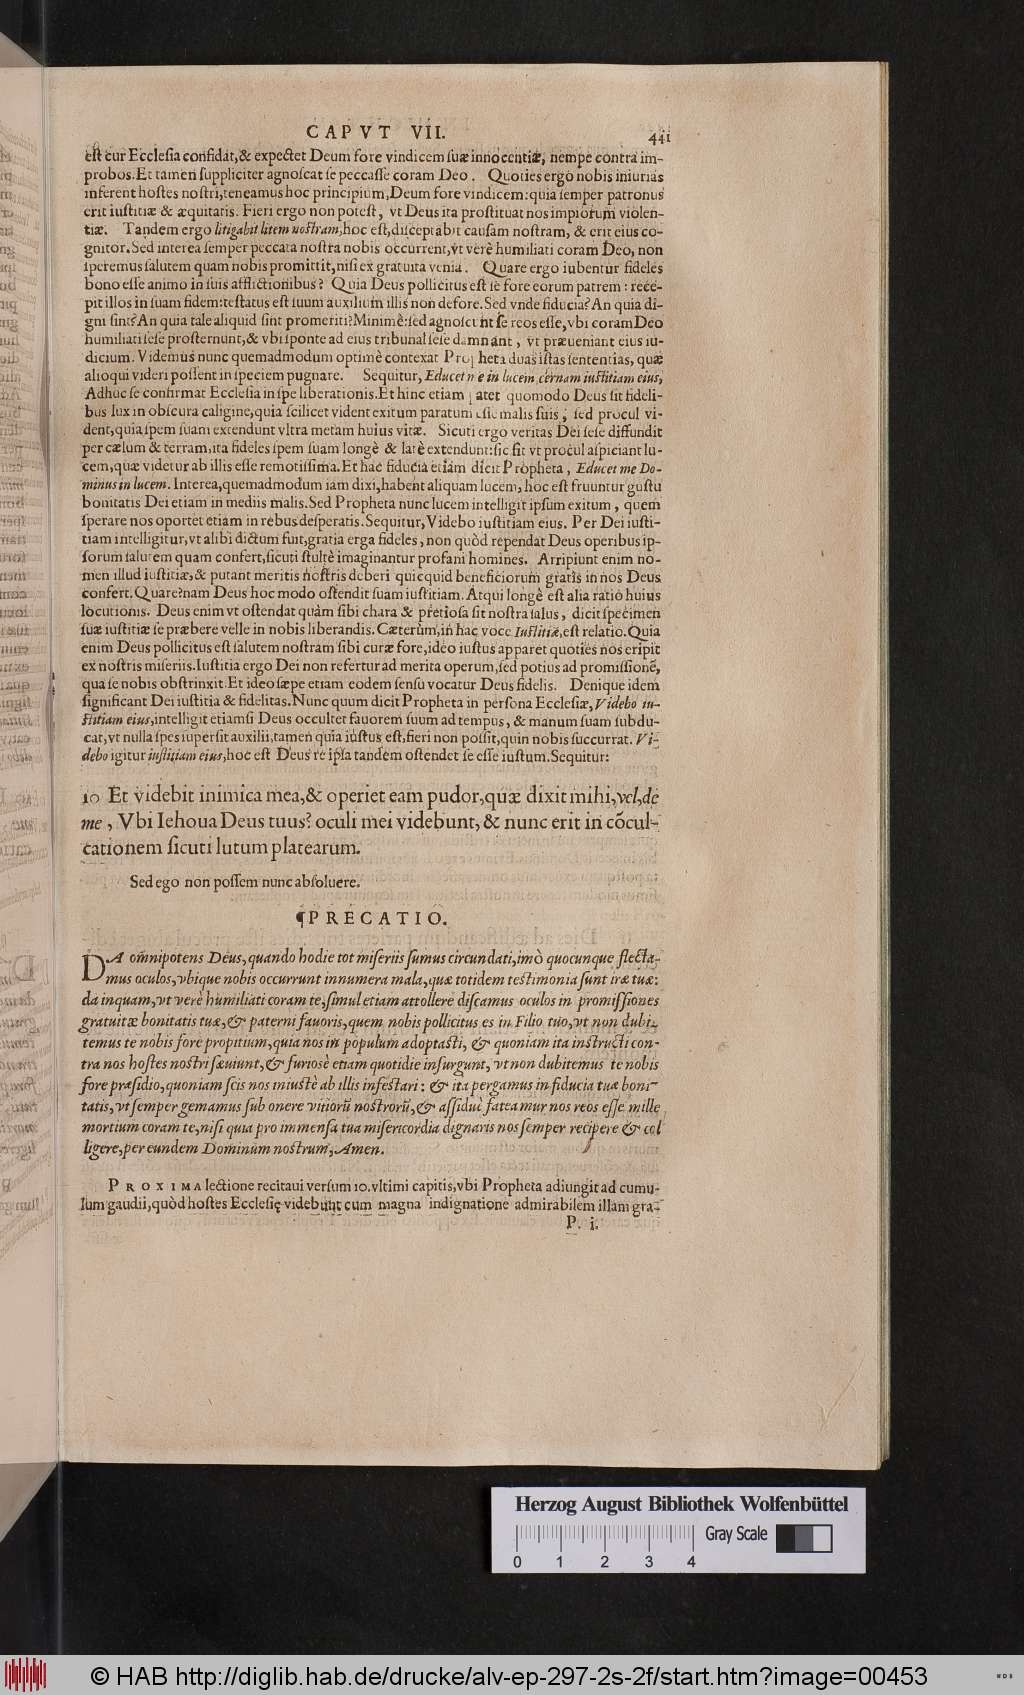 CAPVT VII. 441
eſt cur Eccleſia confidat,& expectet Deum fore vindicem ſuæ innocentiæ, nempe contra im-
probos. Et tamen ſuppliciter agnoſcat ſe peccaſſe coram Deo. Quoties ergo nobis iniurias
inferent hoſtes noſtri,teneamus hoc principium,Deum fore vindicem:quia ſemper patronus
erit iuſtitiæ & æquitatis. Fieri ergo non poteſt, vt Deus ita proſtituat nos impiorum violen-
tiæ. Tandem ergo litigabit litem noſtram,hoc eſt,diſceptabit cauſam noſtram, & erit eius co-
gnitor. Sed interea ſemper peccata noſtra nobis occurrent,vt verè humiliati coram Deo, non
ſperemus ſalutem quam nobis promittit,niſi ex gratuita venia. Quare ergo iubentur fideles
bono eſſe animo in ſuis afflictionibus? Quia Deus pollicitus eſt ſe fore eorum patrem: rece-
pit illos in ſuam fidem:teſtatus eſt ſuum auxilium illis non defore. Sed vnde fiducia? An quia di-
gni ſint? An quia tale aliquid ſint promeriti? Minimè:ſed agnoſcunt ſe reos eſſe,vbi coram Deo
humiliati ſeſe proſternunt,& vbi ſponte ad eius tribunal ſeſe damnant, vt præueniant eius iu-
dicium. Videmus nunc quemadmodum optimè contexat Propheta duas iſtas ſententias, quæ
alioqui videri poſſent in ſpeciem pugnare. Sequitur, Educet me in lucem,cernam iuſtitiam eius,
Adhuc ſe confirmat Eccleſia in ſpe liberationis. Et hinc etiam patet quomodo Deus ſit fideli-
bus lux in obſcura caligine,quia ſcilicet vident exitum paratum eſſe malis ſuis, ſed procul vi-
dent,quia ſpem ſuam extendunt vltra metam huius vitæ. Sicuti ergo veritas Dei ſeſe diffundit
per cælum & terram,ita fideles ſpem ſuam longè & latè extendunt:ſic fit vt procul aſpiciant lu-
cem,quæ videtur ab illis eſſe remotiſſima. Et hac fiducia etiam dicit Propheta, Educet me Do-
minus in lucem. Interea,quemadmodum iam dixi,habent aliquam lucem, hoc eſt fruuntur guſtu
bonitatis Dei etiam in mediis malis. Sed Propheta nunc lucem intelligit ipſum exitum, quem
ſperare nos oportet etiam in rebus deſperatis. Sequitur, Videbo iuſtitiam eius. Per Dei iuſti-
tiam intelligitur,vt alibi dictum fuit,gratia erga fideles, non quòd rependat Deus operibus ip-
ſorum ſalutem quam confert,ſicuti ſtultè imaginantur profani homines. Arripiunt enim no-
men illud iuſtitiæ,& putant meritis noſtris deberi quicquid beneficiorum gratis in nos Deus
confert. Quare?nam Deus hoc modo oſtendit ſuam iuſtitiam. Atqui longè eſt alia ratio huius
locutionis. Deus enim vt oſtendat quàm ſibi chara & pretioſa ſit noſtra ſalus, dicit ſpecimen
ſuæ iuſtitiæ ſe præbere velle in nobis liberandis. Cæterùm,in hac voce Iuſtitiæ,eſt relatio. Quia
enim Deus pollicitus eſt ſalutem noſtram ſibi curæ fore,ideo iuſtus apparet quoties nos eripit
ex noſtris miſeriis. Iuſtitia ergo Dei non refertur ad merita operum,ſed potius ad promiſſionē,
qua ſe nobis obſtrinxit. Et ideo ſæpe etiam eodem ſenſu vocatur Deus fidelis. Denique idem
ſignificant Dei iuſtitia & fidelitas. Nunc quum dicit Propheta in perſona Eccleſiæ, Videbo iu-
ſtitiam eius,intelligit etiamſi Deus occultet fauorem ſuum ad tempus, & manum ſuam ſubdu-
cat,vt nulla ſpes ſuperſit auxilii,tamen quia iuſtus eſt,fieri non poſſit,quin nobis ſuccurrat. Vi-
debo igitur iuſtitiam eius,hoc eſt Deus re ipſa tandem oſtendet ſe eſſe iuſtum. Sequitur:
10 Et videbit inimica mea,& operiet eam pudor,quæ dixit mihi,vel,de
me, Vbi Iehoua Deus tuus? oculi mei videbunt, & nunc erit in cōcul-
cationem ſicuti lutum platearum.
Sed ego non poſſem nunc abſoluere.
¶PRECATIO.
DA omnipotens Deus,quando hodie tot miſeriis ſumus circundati,imò quocunque flecta-
mus oculos,vbique nobis occurrunt innumera mala,quæ totidem teſtimonia ſunt iræ tuæ:
da inquam,vt verè humiliati coram te,ſimul etiam attollere diſcamus oculos in promiſſiones
gratuitæ bonitatis tuæ,& paterni fauoris,quem nobis pollicitus es in Filio tuo,vt non dubi-
temus te nobis fore propitium,quia nos in populum adoptaſti, & quoniam ita inſtructi con-
tra nos hoſtes noſtri ſæuiunt,& furiosè etiam quotidie inſurgunt, vt non dubitemus te nobis
fore præſidio,quoniam ſcis nos iniuſtè ab illis infeſtari: & ita pergamus in fiducia tuæ boni-
tatis,vt ſemper gemamus ſub onere vitiorū noſtrorū,& aſſiduè fateamur nos reos eſſe mille
mortium coram te,niſi quia pro immenſa tua miſericordia dignaris nos ſemper recipere & col
ligere,per eundem Dominum noſtrum, Amen.
PROXIMA lectione recitaui verſum 10.vltimi capitis,vbi Propheta adiungit ad cumu-
lum gaudii,quòd hoſtes Eccleſię videbunt cum magna indignatione admirabilem illam gra-
P. i.
Herzog August Bibliothek Wolfenbüttel
Gray Scale
0 1 2 3 4
© HAB http://diglib.hab.de/drucke/alv-ep-297-2s-2f/start.htm?image=00453